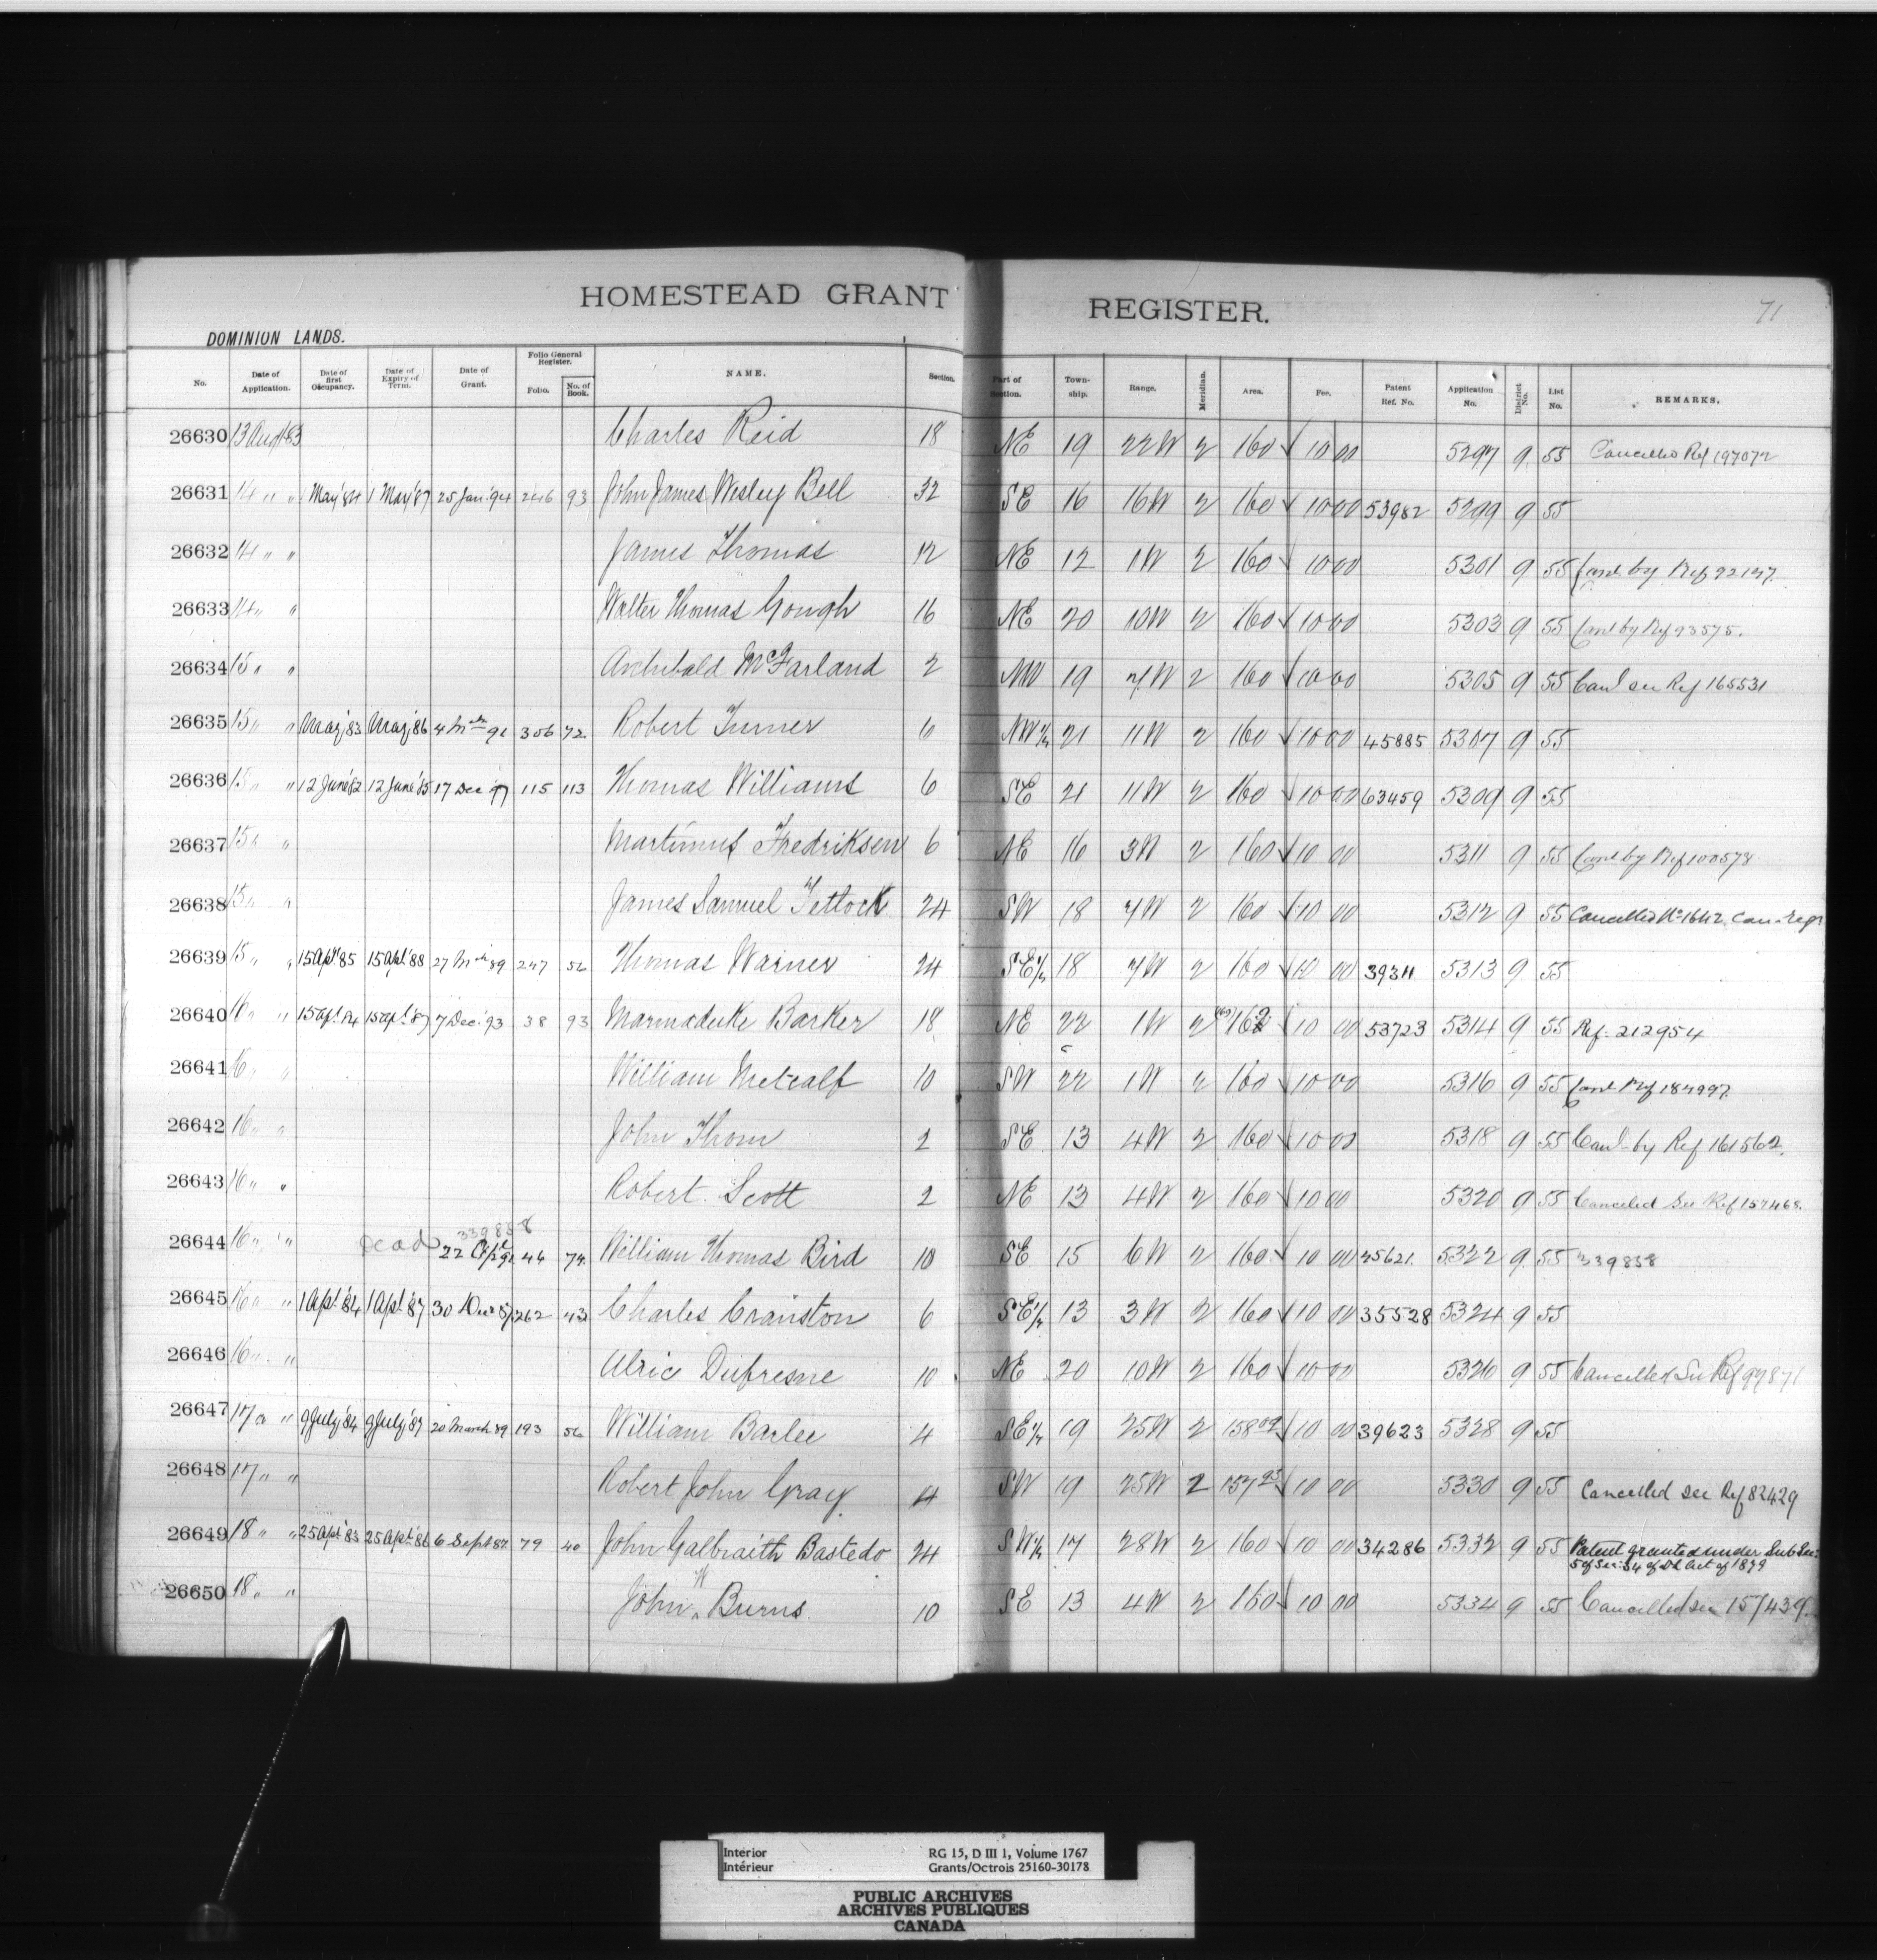 HOMESTEAD GRANT REGISTER.
71
DOMINION LANDS.
No. Date of Application. Date of first Occupancy. Date of Expiry of Term. Date of Grant. Folio General Register. Folio. No. of Book. NAME. Section. Part of Section. Township. Range. Meridian. Area. Fee. Patent Ref. No. Application No. District No. List No. REMARKS.
26630 13 Aug 83 Charles Reid 18 NE 19 22W 2 160 10 00 5297 9 55 Cancelled Ref 197072
26631 14 " " 1 May '84 1 May '87 25 Jan '94 246 93 John James Wesley Bell 32 SE 16 16W 2 160 10 00 53982 5299 9 55
26632 14 " " James Thomas 12 NE 12 1W 2 160 10 00 5301 9 55 Canl by Ref 92147
26633 14 " " Walter Thomas Gough 16 NE 20 10W 2 160 10 00 5303 9 55 Canl by Ref 93575.
26634 15 " " Archibald McFarland 2 NW 19 7W 2 160 10 00 5305 9 55 Canl see Ref 165531
26635 15 " " May '83 May '86 4 Mch 91 306 72 Robert Turner 6 NW¼ 21 11W 2 160 10 00 45885 5307 9 55
26636 15 " " 12 June '82 12 June '85 17 Dec '97 115 113 Thomas Williams 6 SE 21 11W 2 160 10 00 63459 5309 9 55
26637 15 " " Martinus Fredriksen 6 NE 16 3W 2 160 10 00 5311 9 55 Canl by Ref 100578
26638 15 " " James Samuel Tetlock 24 SW 18 7W 2 160 10 00 5312 9 55 Cancelled No 1642. Can. Regr
26639 15 " " 15 Apl '85 15 Apl '88 27 Mch 89 247 56 Thomas Warner 24 SE¼ 18 7W 2 160 10 00 39311 5313 9 55
26640 16 " " 15 Apl 84 15 Apl 87 7 Dec '93 38 93 Marmaduke Barker 18 NE 22 1W 2 162 10 00 53723 5314 9 55 Ref. 212954
26641 16 " " William Metcalf 10 SW 22 1W 2 160 10 00 5316 9 55 Canl Ref 184997
26642 16 " " John Thom 2 SE 13 4W 2 160 10 00 5318 9 55 Canl by Ref 161562.
26643 16 " " Robert Scott 2 NE 13 4W 2 160 10 00 5320 9 55 Canceled See Ref 157468.
339858
26644 16 " " Dead 22 Apl 91 46 74 William Thomas Bird 10 SE 15 6W 2 160 10 00 45621. 5322 9 55 339858
26645 16 " " 1 Apl '84 1 Apl '87 30 Dec 87 262 43 Charles Cranston 6 SE¼ 13 3W 2 160 10 00 35528 5324 9 55
26646 16 " " Ulric Dufresne 10 NE 20 10W 2 160 10 00 5326 9 55 Cancelled See Ref 99871
26647 17 " " 9 July '84 9 July '87 20 March 89 193 56 William Barlee 4 SE¼ 19 25W 2 158 09 10 00 39623 5328 9 55
26648 17 " " Robert John Gray 4 SW 19 25W 2 157 95 10 00 5330 9 55 Cancelled see Ref 82429
26649 18 " " 25 Apl '83 25 Apl '86 6 Sept 87 79 40 John Galbraith Bastedo 24 SW¼ 17 28W 2 160 10 00 34286 5332 9 55 Patent granted under Sub Sec:
5 of Sec: 34 of DL Act of 1879
26650 18 " " John H Burns. 10 SE 13 4W 2 160 10 00 5334 9 55 Cancelled see 157439.
Interior
Intérieur
RG 15, D III 1, Volume 1767
Grants/Octrois 25160-30178
PUBLIC ARCHIVES
ARCHIVES PUBLIQUES
CANADA